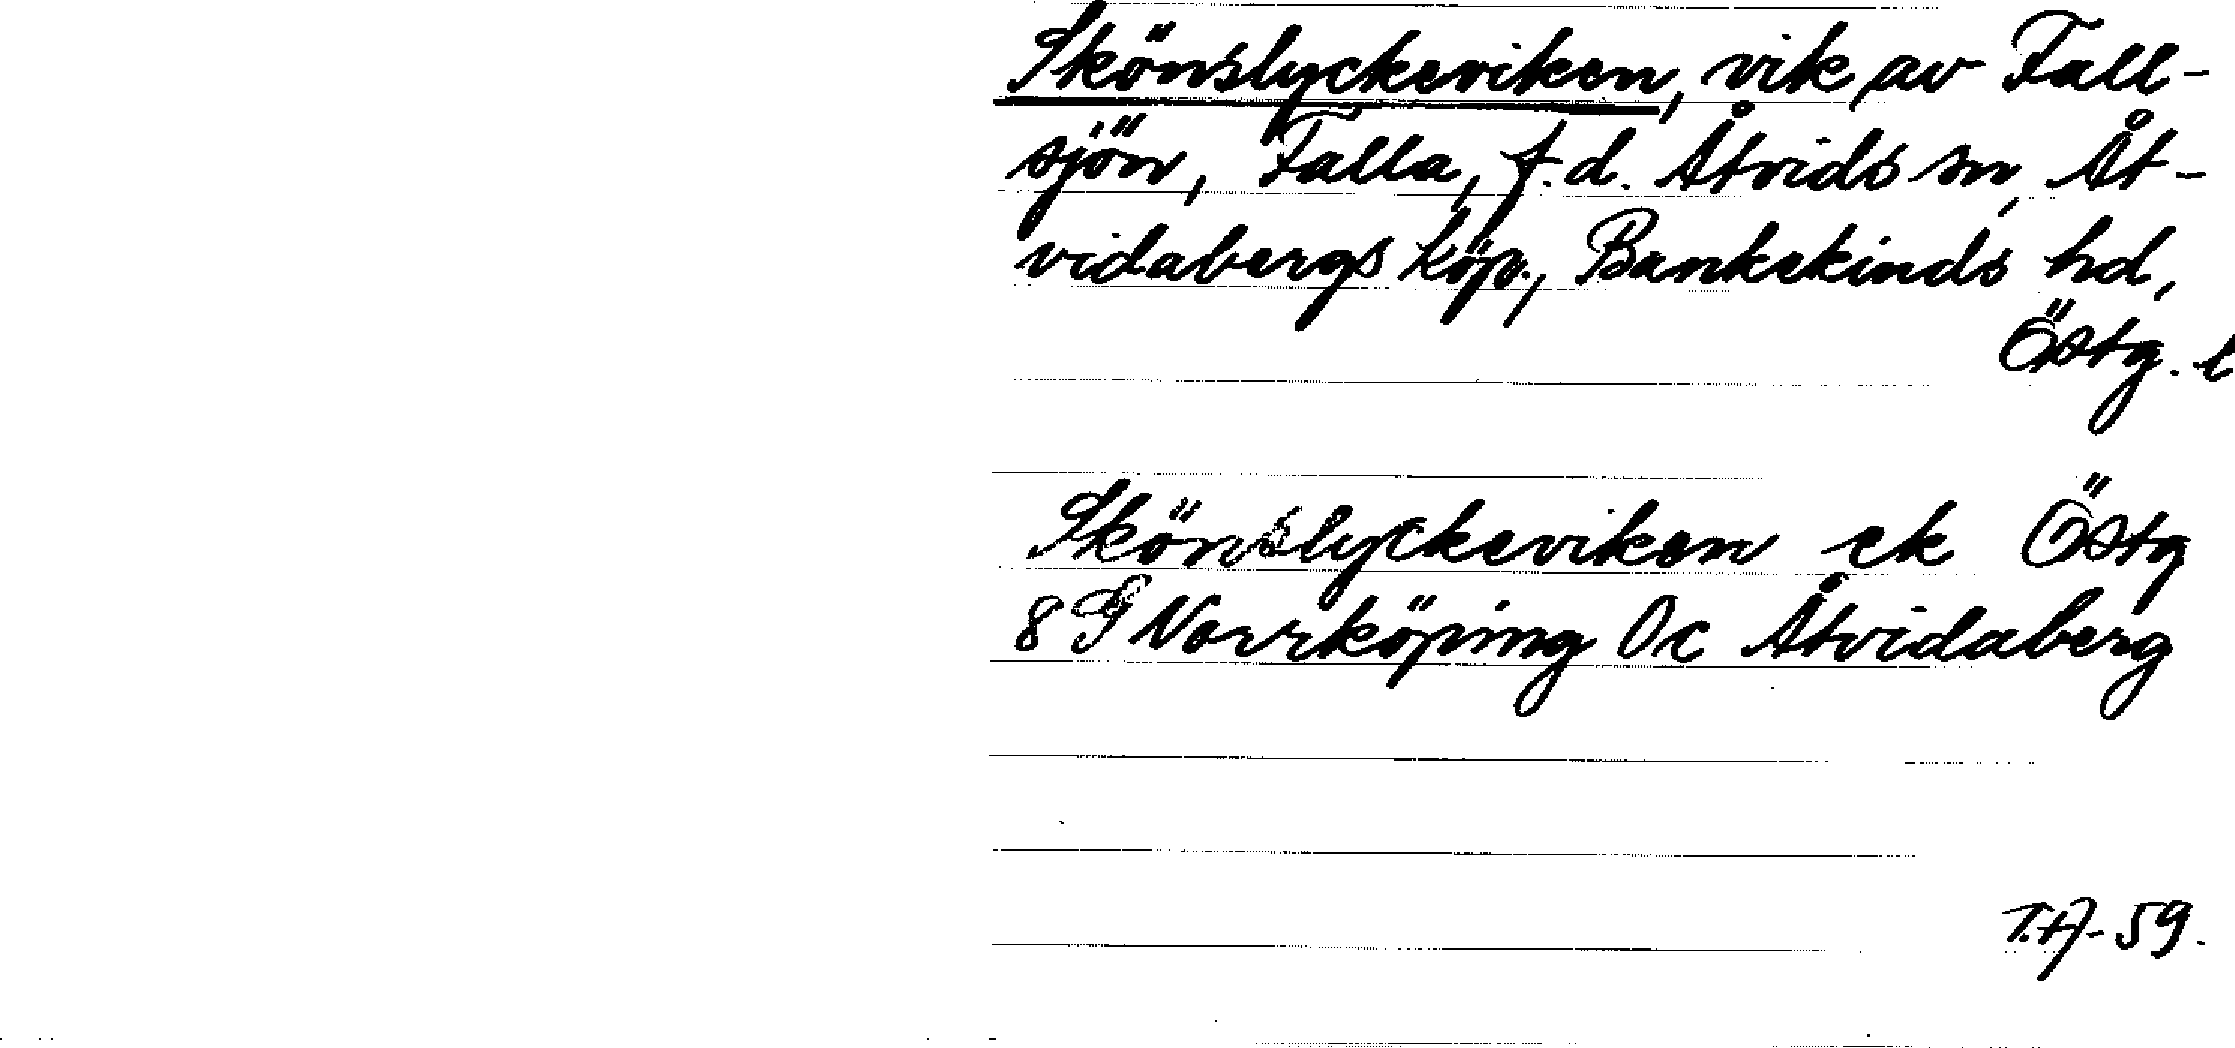 Skönslyckeviken, vik av Fall-
sjön, Falla, f.d. Åtvids sn, Åt-
vidabergs köp., Bankekinds hd,
Östg. l
Skönslyckeviken ek Östg
8 G Norrköping Oc Åtvidaberg
T.A-59.